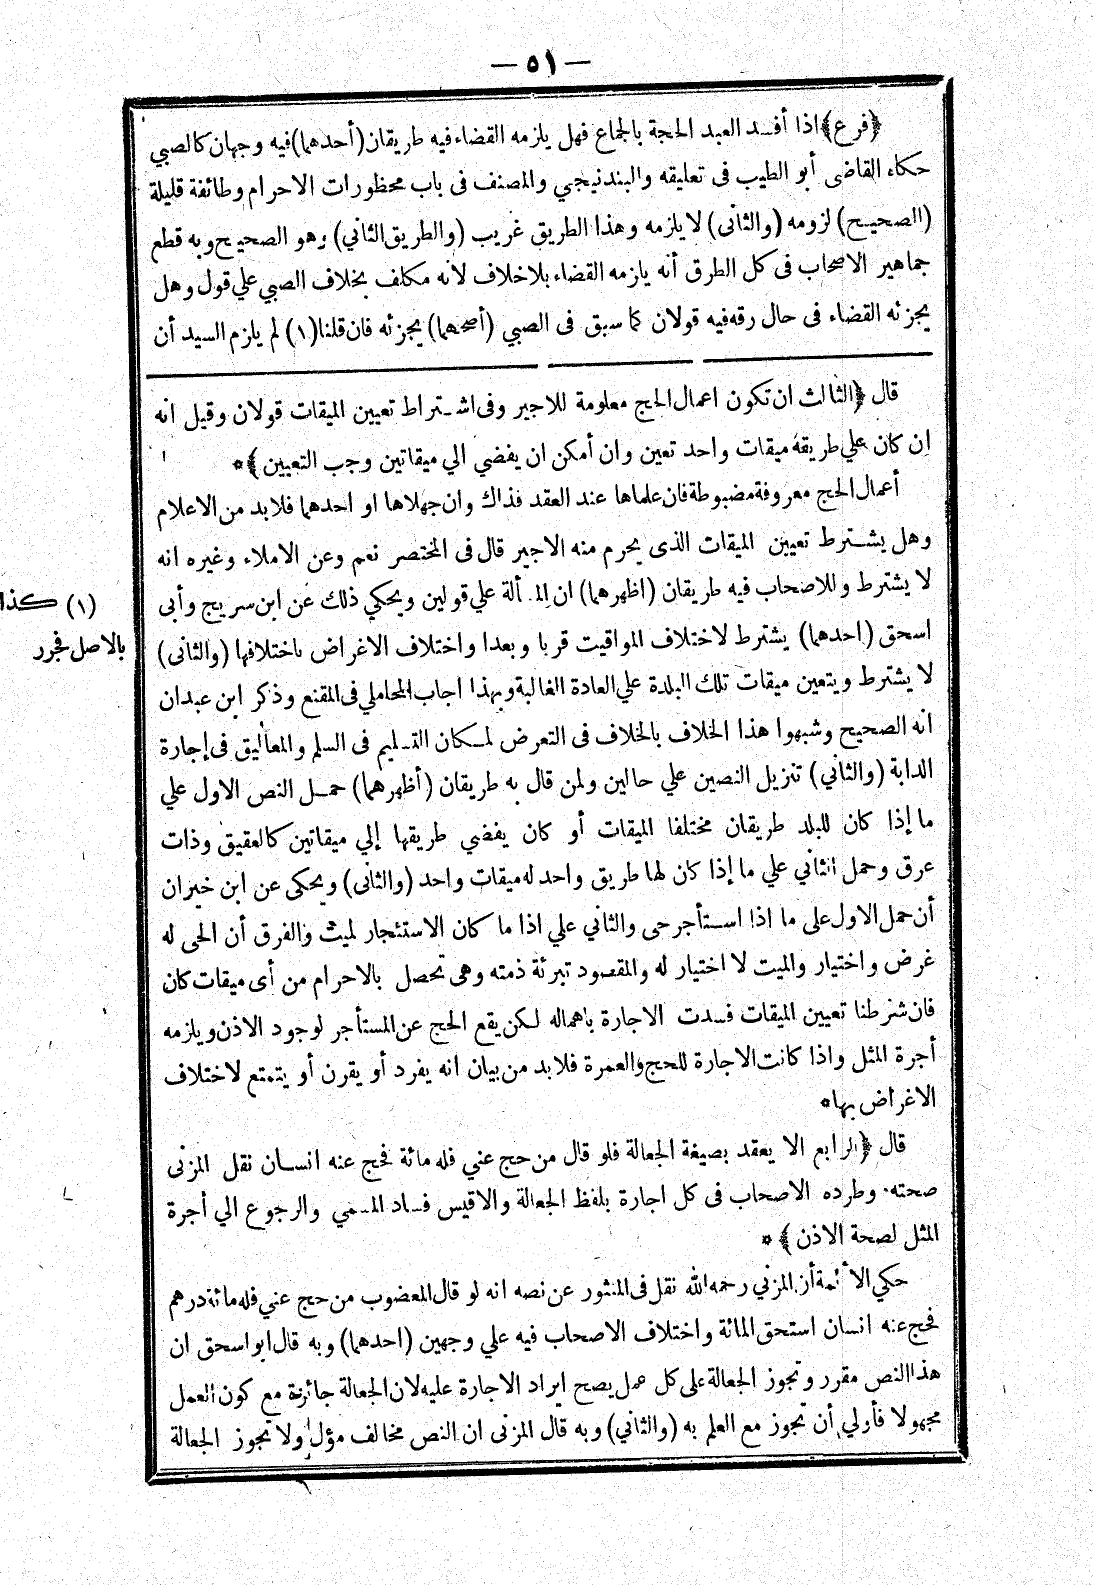 — ٥١ —
﴿فرع﴾ اذا أفسد العبد الحجة بالجماع فهل يلزمه القضاء فيه طريقان (أحدهما) فيه وجهان كالصبي
حكاه القاضى أبو الطيب فى تعليقه والبندنيجي والمصنف فى باب محظورات الاحرام وطائفة قليلة
(الصحيح) لزومه (والثانى) لا يلزمه وهذا الطريق غريب (والطريق الثاني) وهو الصحيح وبه قطع
جماهير الاصحاب فى كل الطرق أنه يلزمه القضاء بلا خلاف لانه مكلف بخلاف الصبي علي قول وهل
يجزئه القضاء فى حال رقه فيه قولان كما سبق فى الصبي (أصحهما) يجزئه فان قلنا (١) لم يلزم السيد أن
قال ﴿الثالث ان تكون اعمال الحج معلومة للاجير وفى اشتراط تعيين الميقات قولان وقيل انه
ان كان علي طريقه ميقات واحد تعين وان أمكن ان يفضي الي ميقاتين وجب التعيين﴾*
أعمال الحج معروفة مضبوطة فان علماها عند العقد فذاك وان جهلاها او احدهما فلا بد من الاعلام
وهل يشترط تعيين الميقات الذى يحرم منه الاجير قال فى المختصر نعم وعن الاملاء وغيره انه
لا يشترط وللاصحاب فيه طريقان (اظهرهما) ان المسألة علي قولين ويحكي ذلك عن ابن سريج وأبى
اسحق (احدهما) يشترط لاختلاف المواقيت قربا وبعدا واختلاف الاغراض باختلافها (والثانى)
لا يشترط ويتعين ميقات تلك البلدة علي العادة الغالبة وبهذا اجاب المحاملي فى المقنع وذكر ابن عبدان
انه الصحيح وشبهوا هذا الخلاف بالخلاف فى التعرض لمكان التسليم فى السلم والمعاليق فى إجارة
الدابة (والثاني) تنزيل النصين علي حالين ولمن قال به طريقان (أظهرهما) حمل النص الاول علي
ما إذا كان للبلد طريقان مختلفا الميقات أو كان يفضي طريقها إلي ميقاتين كالعقيق وذات
عرق وحمل الثاني علي ما إذا كان لها طريق واحد له ميقات واحد (والثانى) ويحكى عن ابن خيران
أن حمل الاول على ما اذا استأجر حى والثاني علي اذا ما كان الاستئجار لميث والفرق أن الحى له
غرض واختيار والميت لا اختيار له والمقصود تبرئة ذمته وهى تحصل بالاحرام من أى ميقات كان
فان شرطنا تعيين الميقات فسدت الاجارة باهماله لكن يقع الحج عن المستأجر لوجود الاذن ويلزمه
أجرة المثل واذا كانت الاجارة للحج والعمرة فلا بد من بيان انه يفرد أو يقرن أو يتمتع لاختلاف
الاغراض بها*
قال ﴿الرابع الا يعقد بصيغة الجعالة فلو قال من حج عني فله مائة فحج عنه انسان نقل المزنى
صحته وطرده الاصحاب فى كل اجارة بلفظ الجعالة والاقيس فساد المسمي والرجوع الي أجرة
المثل لصحة الاذن﴾*
حكي الأئمة أن المزني رحمه الله نقل فى المنثور عن نصه انه لو قال المعضوب من حج عني فله مائة درهم
فحج عنه انسان استحق المائة واختلاف الاصحاب فيه علي وجهين (احدهما) وبه قال ابو اسحق ان
هذا النص مقرر وتجوز الجعالة على كل عمل يصح ايراد الاجارة عليه لان الجعالة جائزة مع كون العمل
مجهولا فأولي أن تجوز مع العلم به (والثاني) وبه قال المزنى ان النص مخالف مؤل ولا تجوز الجعالة
(١) كذا
بالاصل فحرر